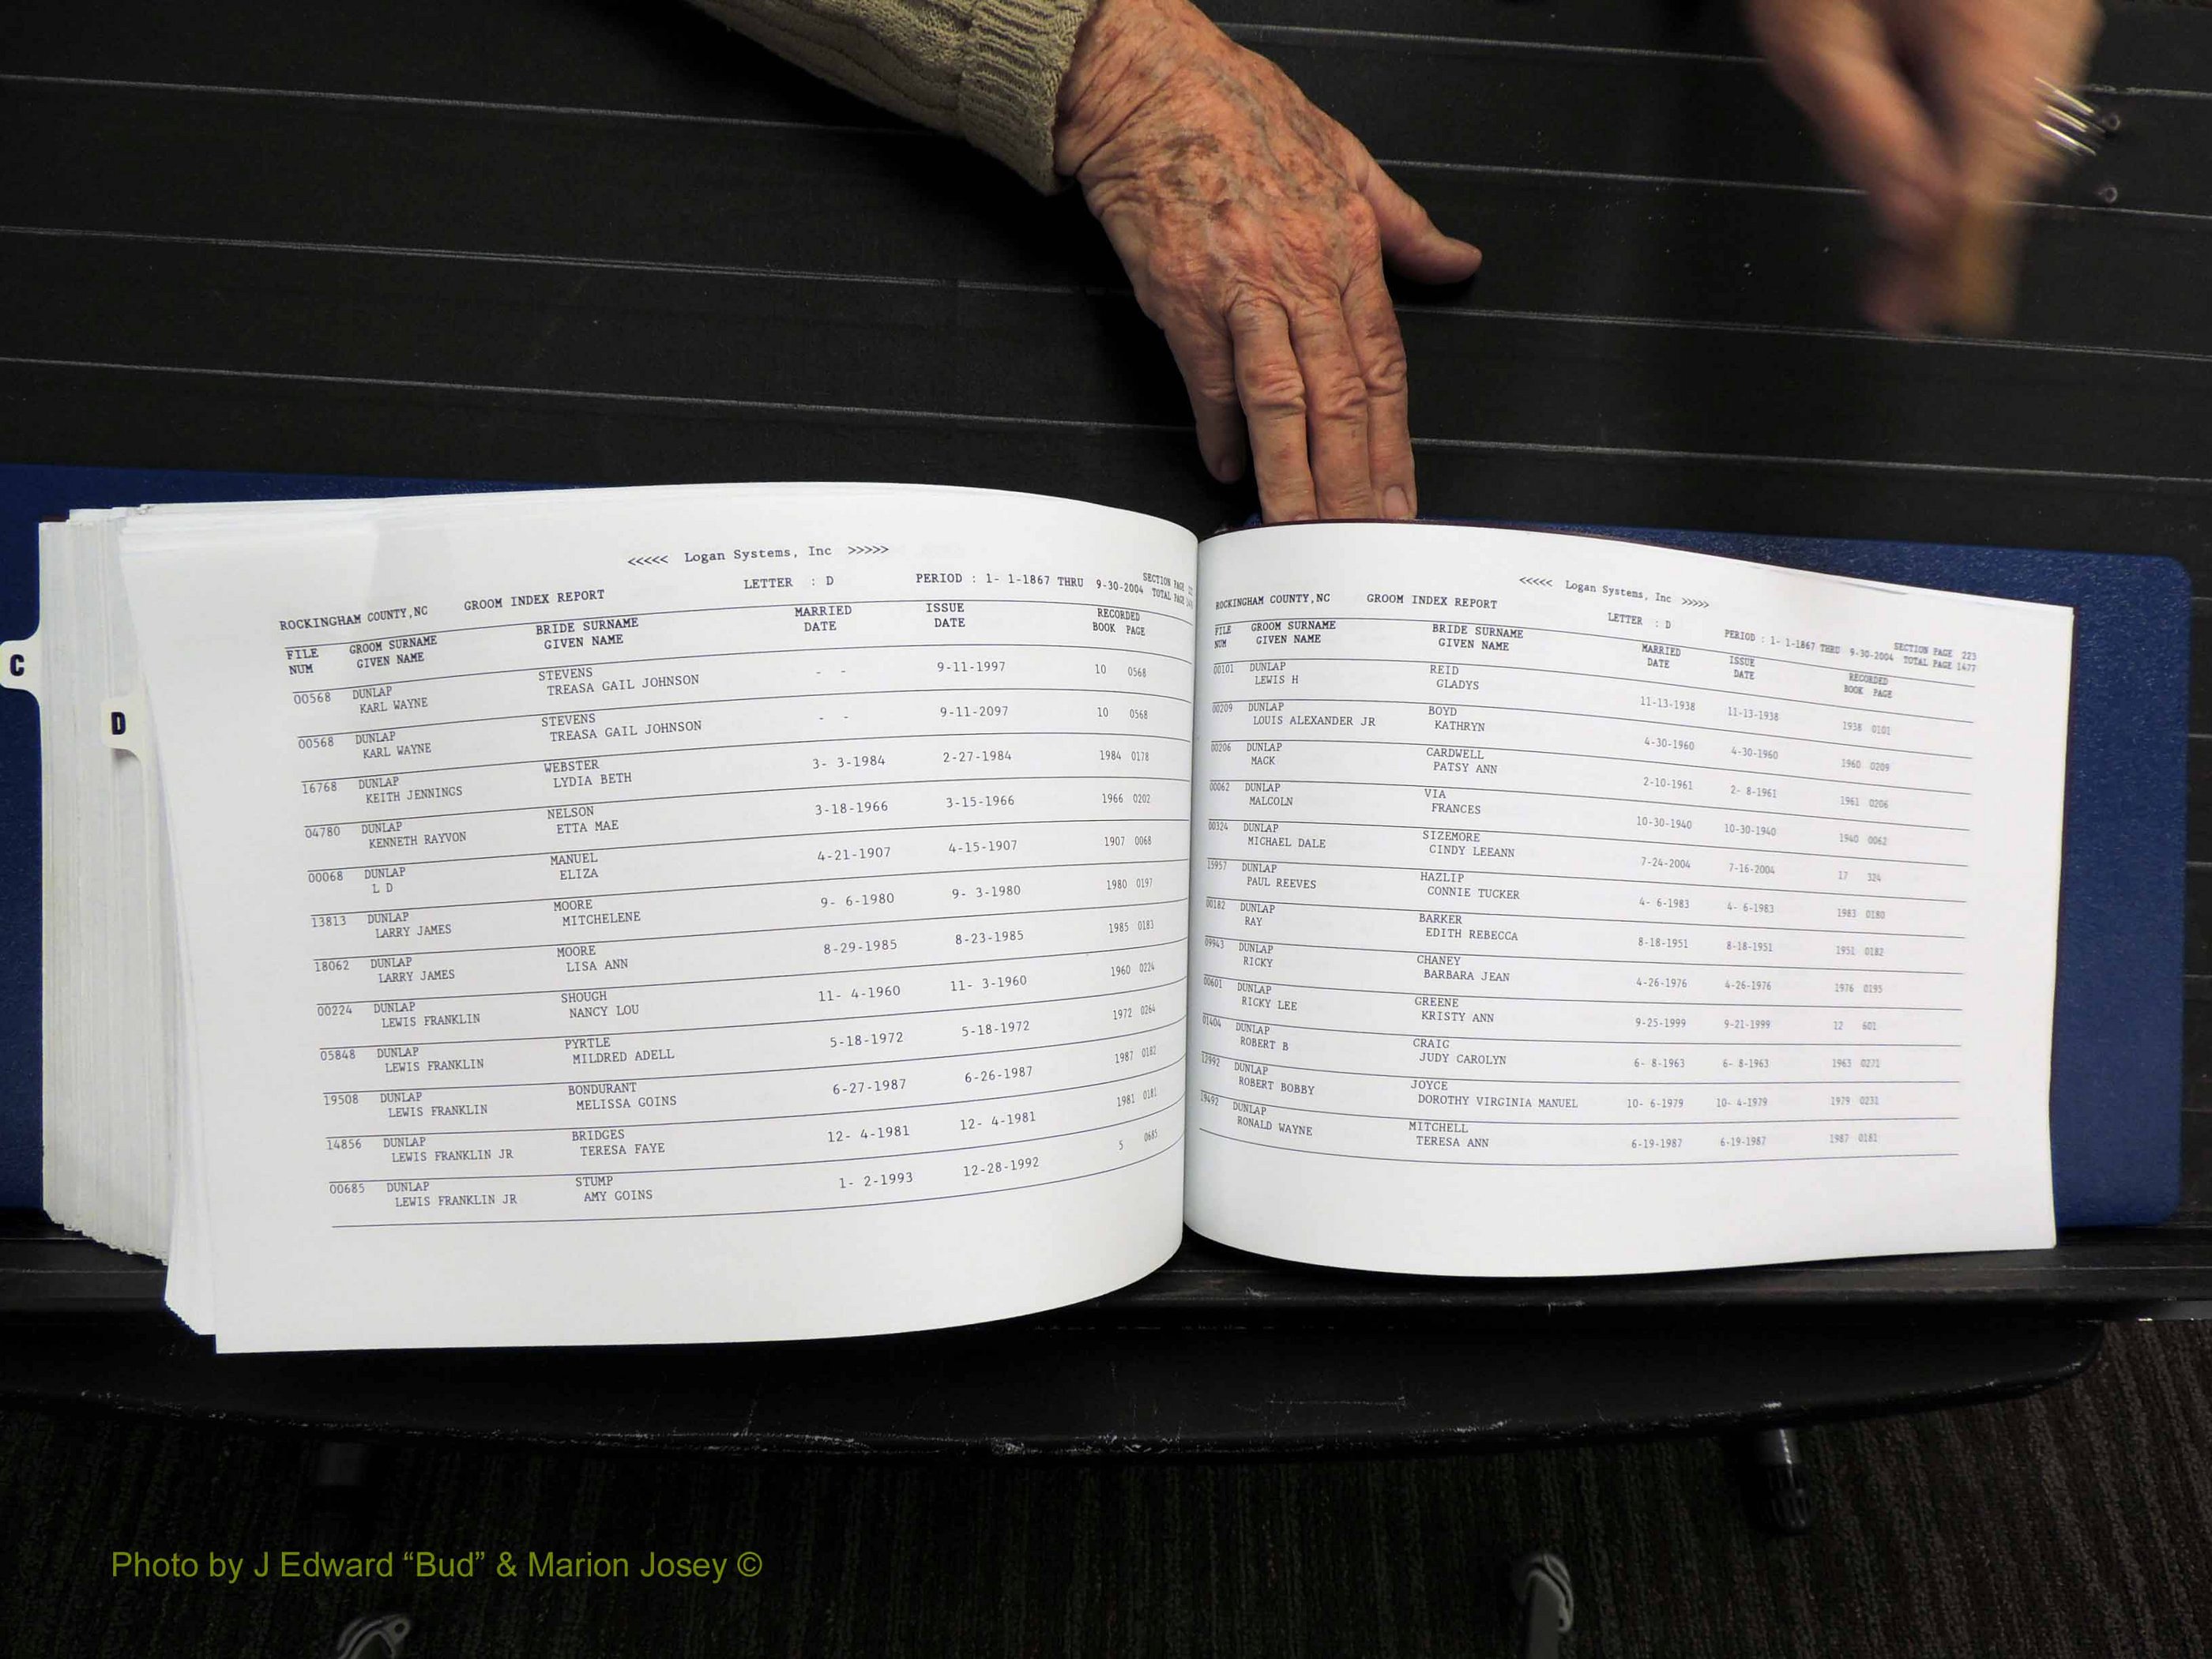 C
D
<<<<< Logan Systems, Inc >>>>>
ROCKINGHAM COUNTY,NC GROOM INDEX REPORT LETTER : D PERIOD : 1- 1-1867 THRU 9-30-2004 SECTION PAGE
TOTAL PAGE
FILE GROOM SURNAME BRIDE SURNAME MARRIED ISSUE RECORDED
NUM GIVEN NAME GIVEN NAME DATE DATE BOOK PAGE
00568 DUNLAP STEVENS - - 9-11-1997 10 0568
KARL WAYNE TREASA GAIL JOHNSON
00568 DUNLAP STEVENS - - 9-11-2097 10 0568
KARL WAYNE TREASA GAIL JOHNSON
16768 DUNLAP WEBSTER 3- 3-1984 2-27-1984 1984 0178
KEITH JENNINGS LYDIA BETH
04780 DUNLAP NELSON 3-18-1966 3-15-1966 1966 0202
KENNETH RAYVON ETTA MAE
00068 DUNLAP MANUEL 4-21-1907 4-15-1907 1907 0068
L D ELIZA
13813 DUNLAP MOORE 9- 6-1980 9- 3-1980 1980 0197
LARRY JAMES MITCHELENE
18062 DUNLAP MOORE 8-29-1985 8-23-1985 1985 0183
LARRY JAMES LISA ANN
00224 DUNLAP SHOUGH 11- 4-1960 11- 3-1960 1960 0224
LEWIS FRANKLIN NANCY LOU
05848 DUNLAP PYRTLE 5-18-1972 5-18-1972 1972 0264
LEWIS FRANKLIN MILDRED ADELL
19508 DUNLAP BONDURANT 6-27-1987 6-26-1987 1987 0182
LEWIS FRANKLIN MELISSA GOINS
14856 DUNLAP BRIDGES 12- 4-1981 12- 4-1981 1981 0181
LEWIS FRANKLIN JR TERESA FAYE
00685 DUNLAP STUMP 1- 2-1993 12-28-1992 5 0685
LEWIS FRANKLIN JR AMY GOINS
<<<<< Logan Systems, Inc >>>>>
ROCKINGHAM COUNTY,NC GROOM INDEX REPORT LETTER : D PERIOD : 1- 1-1867 THRU 9-30-2004 SECTION PAGE 223
TOTAL PAGE 1477
FILE GROOM SURNAME BRIDE SURNAME MARRIED ISSUE RECORDED
NUM GIVEN NAME GIVEN NAME DATE DATE BOOK PAGE
00101 DUNLAP REID 11-13-1938 11-13-1938 1938 0101
LEWIS H GLADYS
00209 DUNLAP BOYD 4-30-1960 4-30-1960 1960 0209
LOUIS ALEXANDER JR KATHRYN
00206 DUNLAP CARDWELL 2-10-1961 2- 8-1961 1961 0206
MACK PATSY ANN
00062 DUNLAP VIA 10-30-1940 10-30-1940 1940 0062
MALCOLN FRANCES
00324 DUNLAP SIZEMORE 7-24-2004 7-16-2004 17 324
MICHAEL DALE CINDY LEEANN
15957 DUNLAP HAZLIP 4- 6-1983 4- 6-1983 1983 0180
PAUL REEVES CONNIE TUCKER
00182 DUNLAP BARKER 8-18-1951 8-18-1951 1951 0182
RAY EDITH REBECCA
09943 DUNLAP CHANEY 4-26-1976 4-26-1976 1976 0195
RICKY BARBARA JEAN
00601 DUNLAP GREENE 9-25-1999 9-21-1999 12 601
RICKY LEE KRISTY ANN
01404 DUNLAP CRAIG 6- 8-1963 6- 8-1963 1963 0271
ROBERT B JUDY CAROLYN
12992 DUNLAP JOYCE 10- 6-1979 10- 4-1979 1979 0231
ROBERT BOBBY DOROTHY VIRGINIA MANUEL
19492 DUNLAP MITCHELL 6-19-1987 6-19-1987 1987 0181
RONALD WAYNE TERESA ANN
Photo by J Edward “Bud” & Marion Josey ©